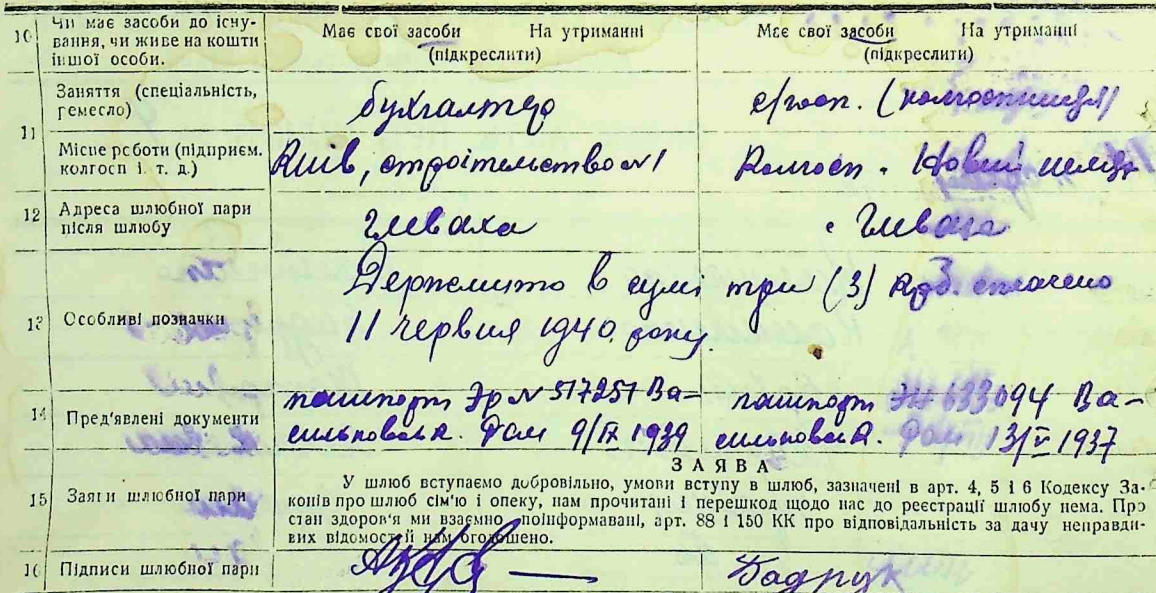 10 Чи має засоби до існу-
вання, чи живе на кошти
іншої особи.
Має свої засоби На утриманні
(підкреслити)
Має свої засоби На утриманні
(підкреслити)
11 Заняття (спеціальність,
ремесло)
бухгалтер
с/госп. (колгоспниця)
Місце роботи (підприєм.
колгосп і. т. д.)
Київ, строітельство №1
Колгосп. Новий
12 Адреса шлюбної пари
після шлюбу
Глеваха
с Глеваха
13 Особливі позначки
Держмито в сумі три (3) крб. сплачено
11 червня 1940. року
14 Пред'явлені документи
пашпорт Эр № 517257 Ва-
сильковськ. Фом 9/IX 1939
пашпорт ЭЖ 633094 Ва-
сильковськ. Фом 13/V 1937
15 Заяви шлюбної пари
ЗАЯВА
У шлюб вступаємо добровільно, умови вступу в шлюб, зазначені в арт. 4, 5 і 6 Кодексу За-
конів про шлюб сім'ю і опеку, нам прочитані і перешкод щодо нас до реєстрації шлюбу нема. Про
стан здоров'я ми взаємно поінформавані, арт. 88 і 150 КК про відповідальність за дачу неправди-
вих відомостей нам оголошено.
16 Підписи шлюбної пари
Бадрук